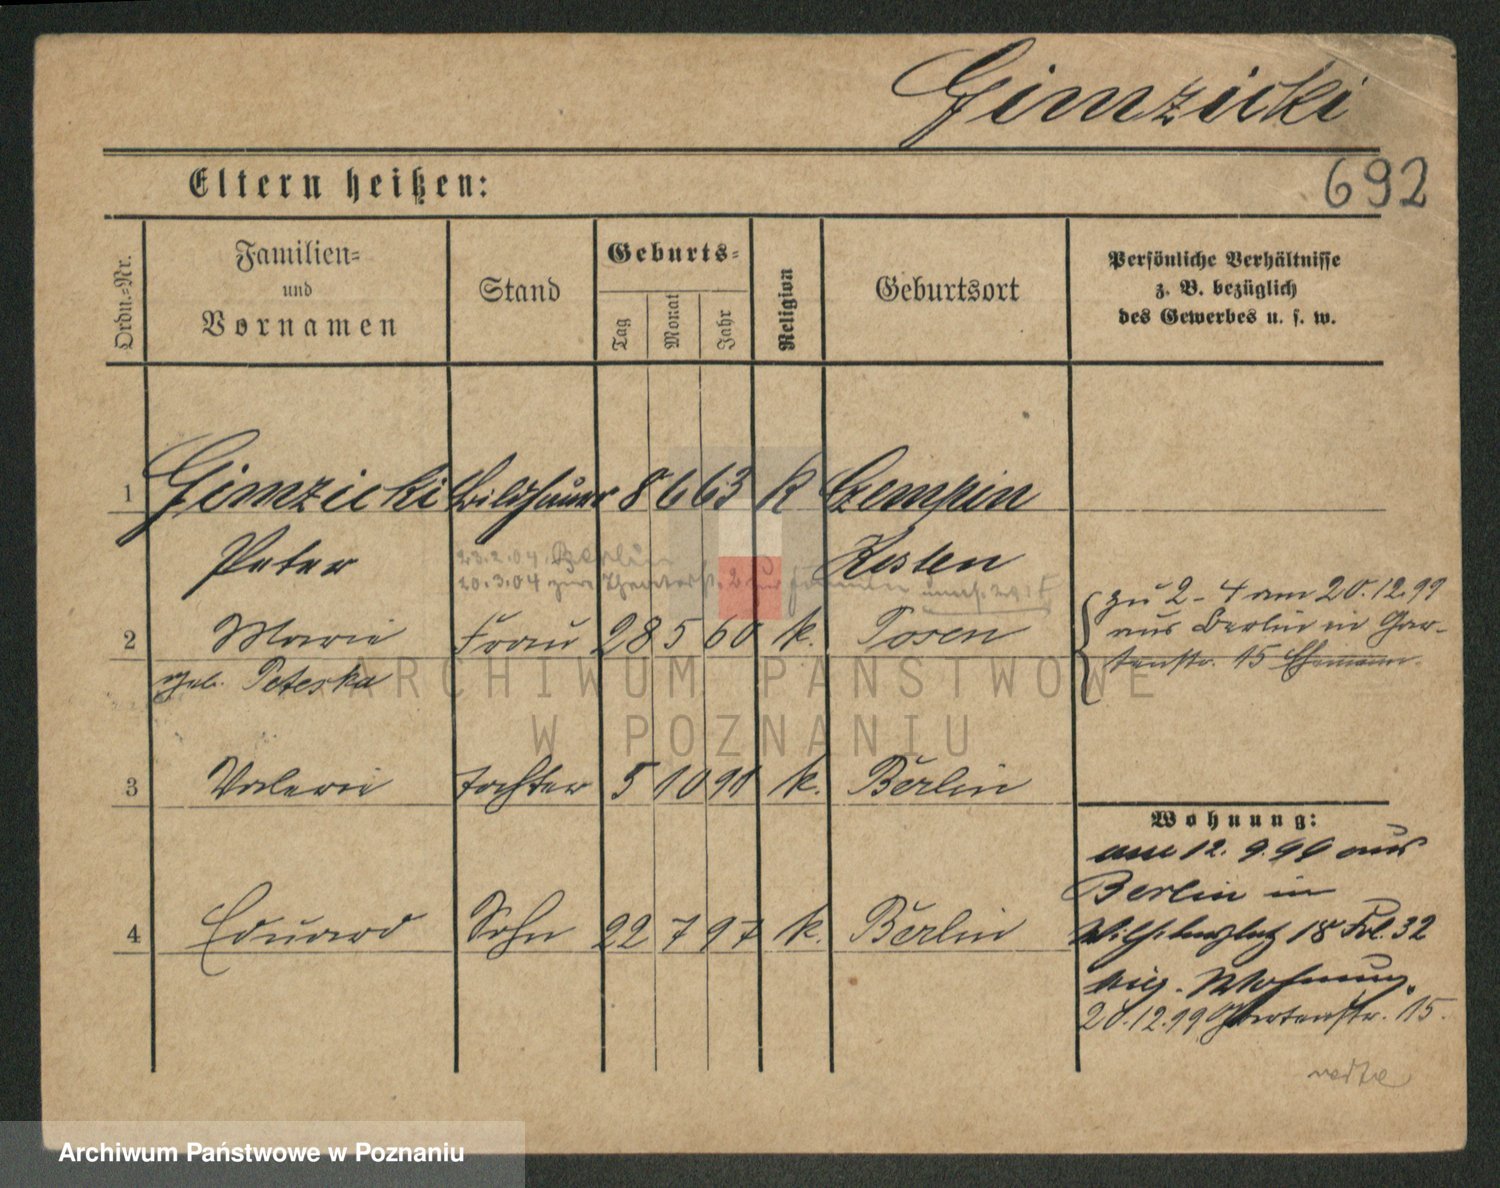 Gimzicki
692
Eltern heißen:
Ordn.-Nr.
Familien- und Vornamen
Stand
Geburts-
Tag
Monat
Jahr
Religion
Geburtsort
Persönliche Verhältnisse
z. B. bezüglich
des Gewerbes u. s. w.
1 Gimzicki Bildhauer 8 6 63 k Czempin
Peter Kosten
23.2.04 Berlin
20.3.04 zur
2 Marie Frau 28 5 60 k. Posen
geb. Peteska
zu 2 - 4 am 20.12.99
aus Berlin in Gar-
tenstr. 15 Ehemann.
3 Valerie Tochter 5 10 91 k. Berlin
4 Eduard Sohn 22 7 97 k. Berlin
Wohnung:
am 12. 9. 99 aus
Berlin in
Wilhelmsplatz 18
Wohnung.
20.12.99 Gartenstr. 15.
ARCHIWUM PAŃSTWOWE
W POZNANIU
Archiwum Państwowe w Poznaniu